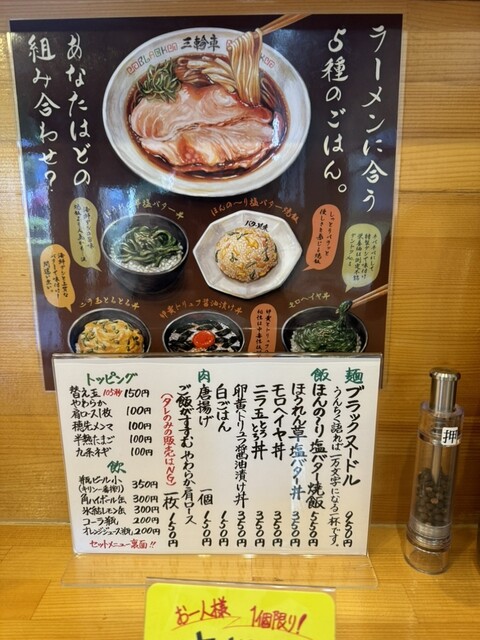 ラーメンに合う
5種のごはん。
三輪車
あなたはどの
組み合わせ？
ほんの〜り塩バター焼飯
塩バター丼
ニラ玉とろとろ丼
卵黄トリュフ醤油漬け丼
モロヘイヤ丼
麺
ブラックヌードル 950円
うんちく語れば一万文字になる一杯です。
飯
ほんのり塩バター焼飯 550円
ほうれん草塩バター丼 350円
モロヘイヤ丼 350円
ニラ玉とろとろ丼 350円
卵黄トリュフ醤油漬け丼 350円
白ごはん 150円
肉
唐揚げ 一個 150円
ご飯がすすむやわらか肩ロース 一枚 150円
(タレのみの販売はNG)
トッピング
替え玉 105秒 150円
やわらか
肩ロース1枚 100円
穂先メンマ 100円
半熟たまご 100円
九条ネギ 100円
飲
瓶ビール小 350円
(キリン一番搾り)
角ハイボール缶 300円
氷結レモン缶 300円
コーラ瓶 200円
オレンジジュース瓶 200円
セットメニュー裏面!!
押
お一人様 1個限り!